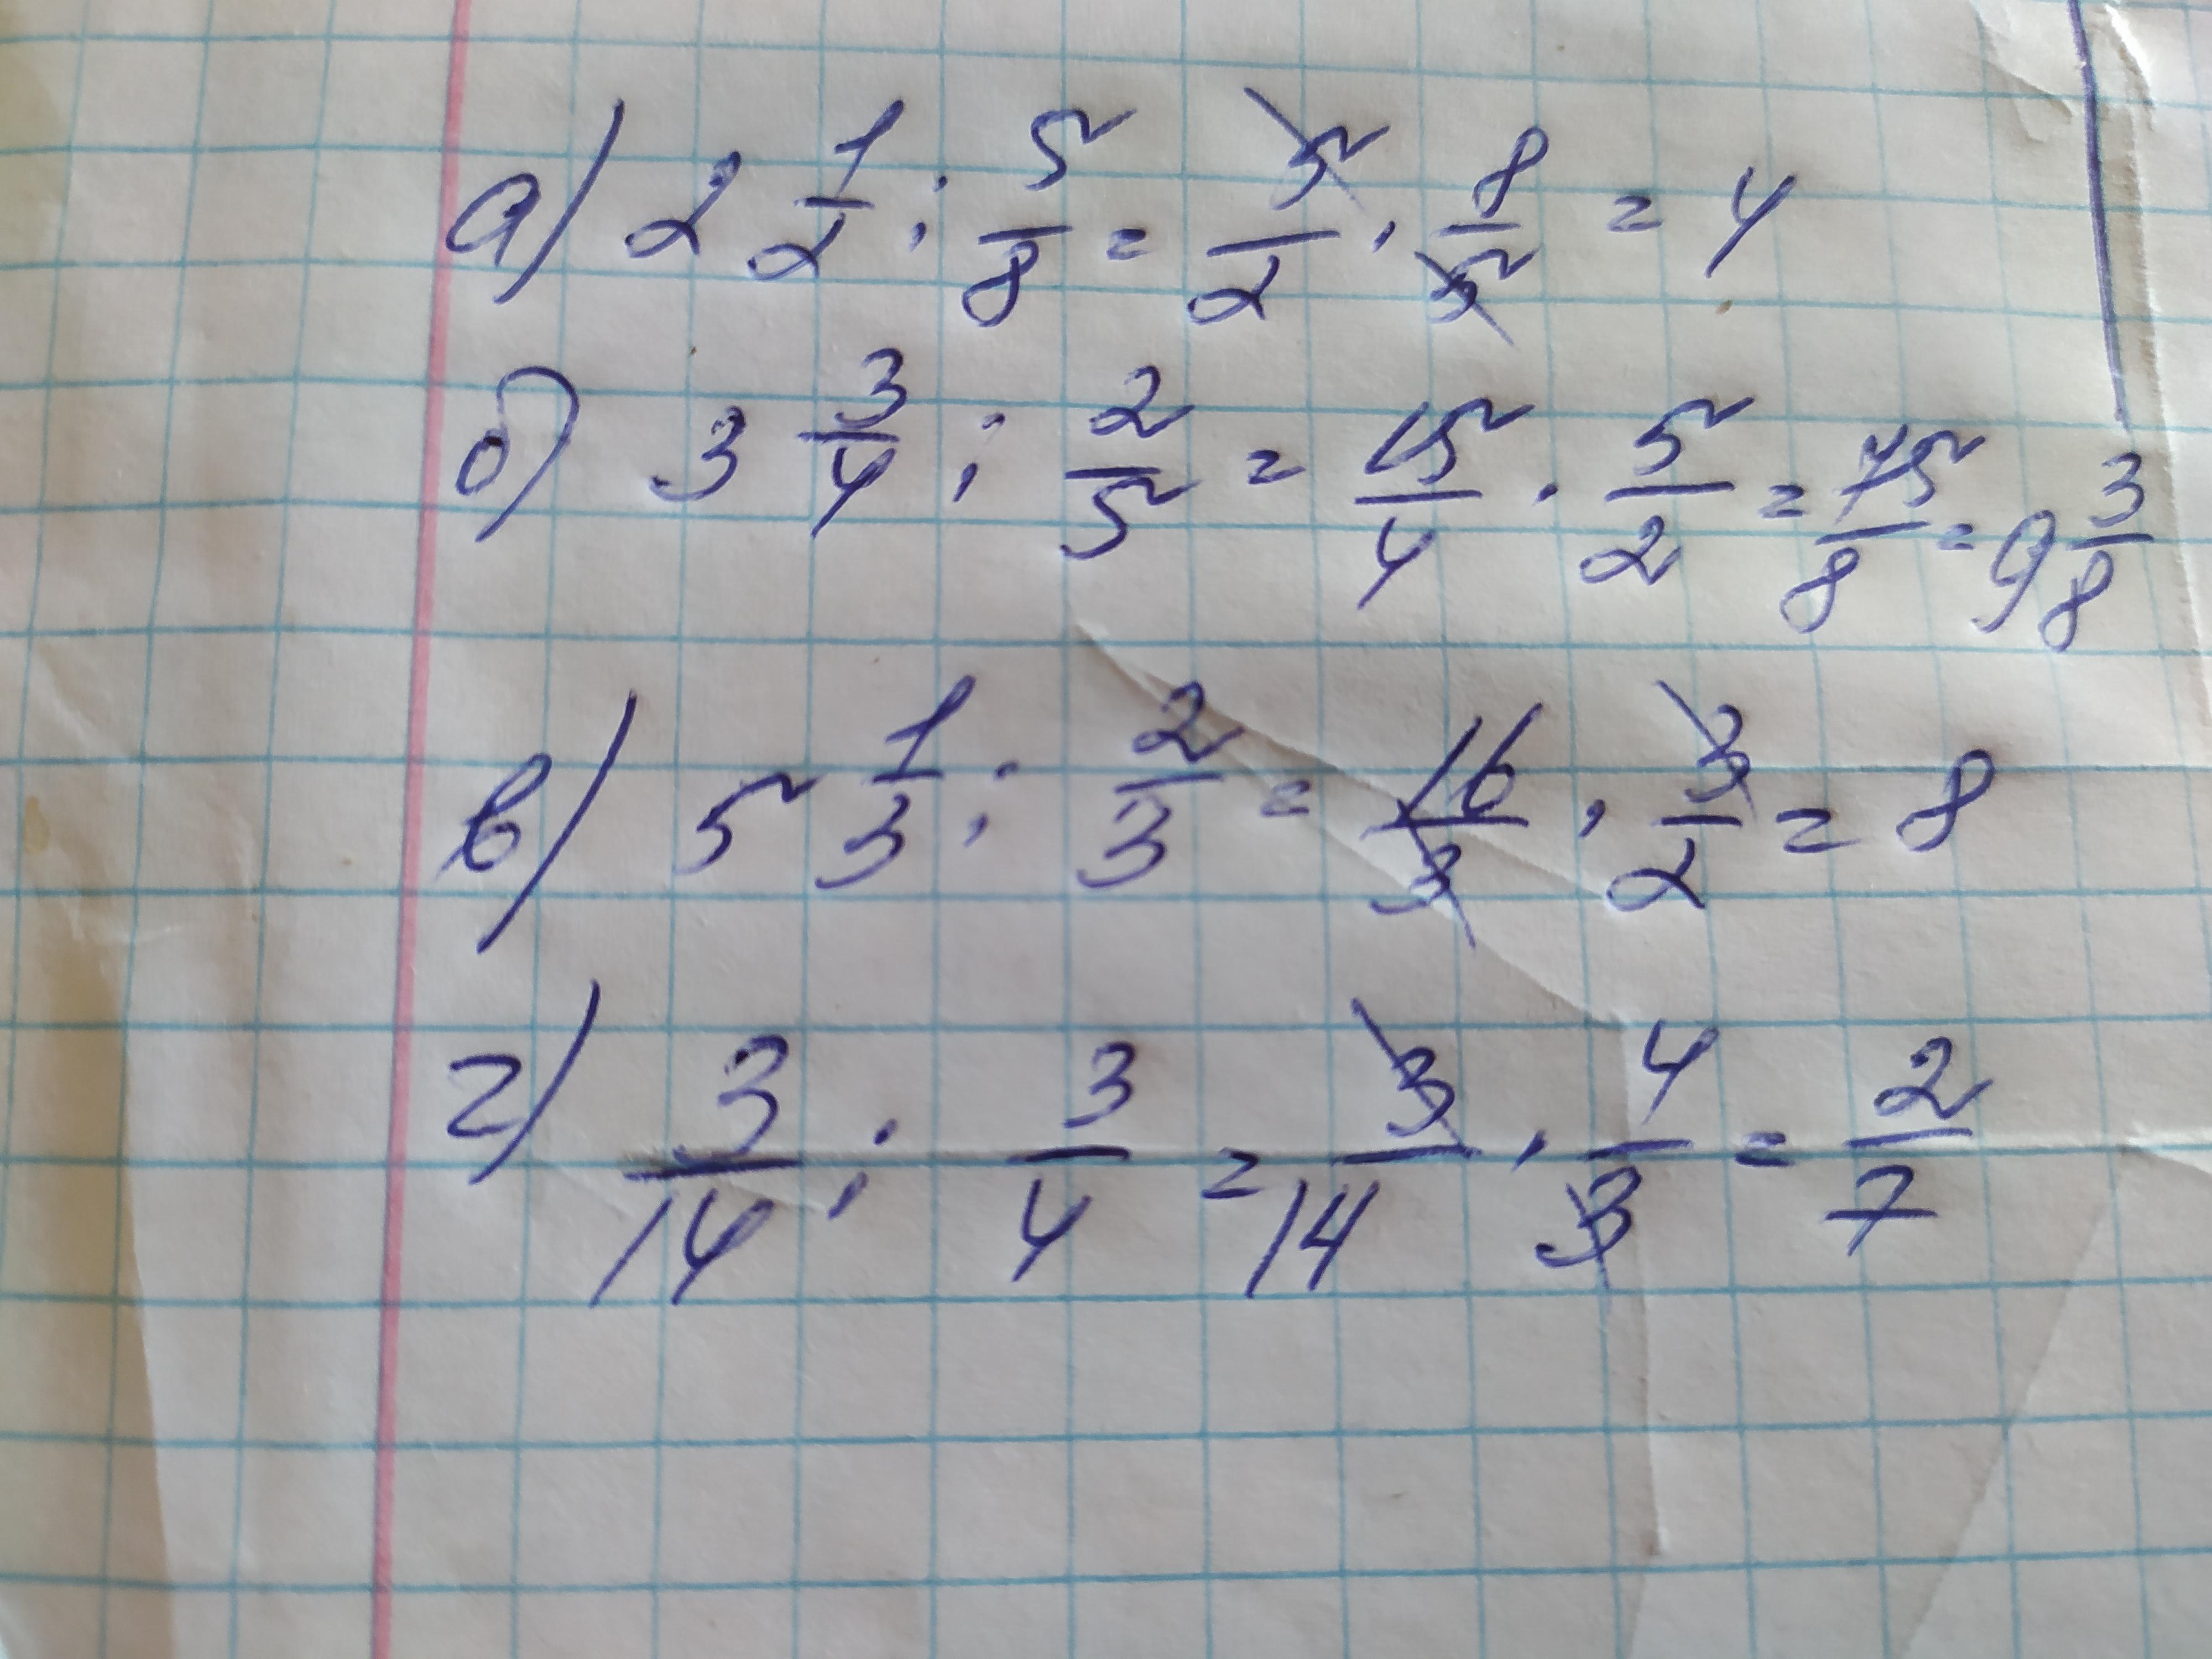 а) 2 1/2 : 5/8 = 5/2 · 8/5 = 4
б) 3 3/4 : 2/5 = 15/4 · 5/2 = 75/8 = 9 3/8
в) 5 1/3 : 2/3 = 16/3 · 3/2 = 8
г) 3/14 : 3/4 = 3/14 · 4/3 = 2/7